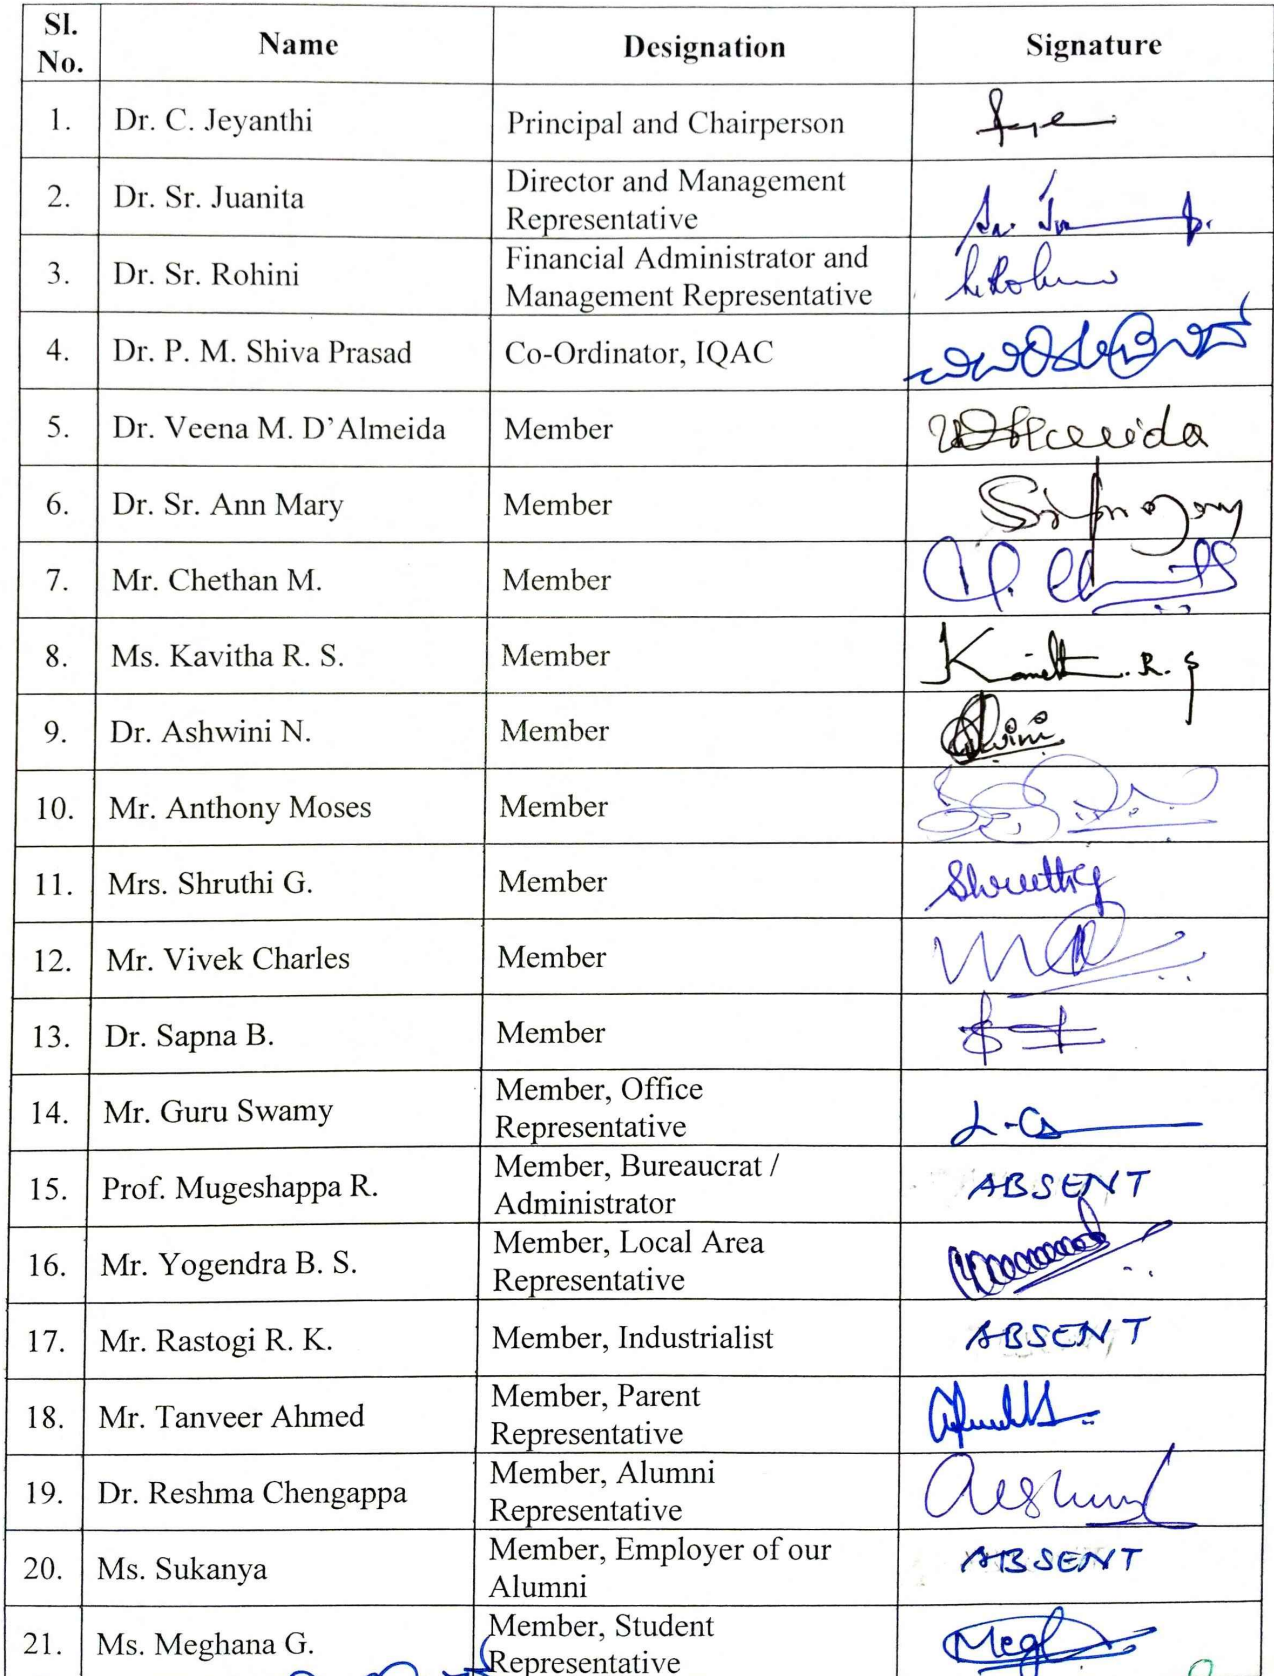 Sl. No. Name Designation Signature
1. Dr. C. Jeyanthi Principal and Chairperson
2. Dr. Sr. Juanita Director and Management
Representative
3. Dr. Sr. Rohini Financial Administrator and
Management Representative
4. Dr. P. M. Shiva Prasad Co-Ordinator, IQAC
5. Dr. Veena M. D’Almeida Member
6. Dr. Sr. Ann Mary Member
7. Mr. Chethan M. Member
8. Ms. Kavitha R. S. Member
9. Dr. Ashwini N. Member
10. Mr. Anthony Moses Member
11. Mrs. Shruthi G. Member
12. Mr. Vivek Charles Member
13. Dr. Sapna B. Member
14. Mr. Guru Swamy Member, Office
Representative
15. Prof. Mugeshappa R. Member, Bureaucrat /
Administrator ABSENT
16. Mr. Yogendra B. S. Member, Local Area
Representative
17. Mr. Rastogi R. K. Member, Industrialist ABSENT
18. Mr. Tanveer Ahmed Member, Parent
Representative
19. Dr. Reshma Chengappa Member, Alumni
Representative
20. Ms. Sukanya Member, Employer of our
Alumni ABSENT
21. Ms. Meghana G. Member, Student
Representative